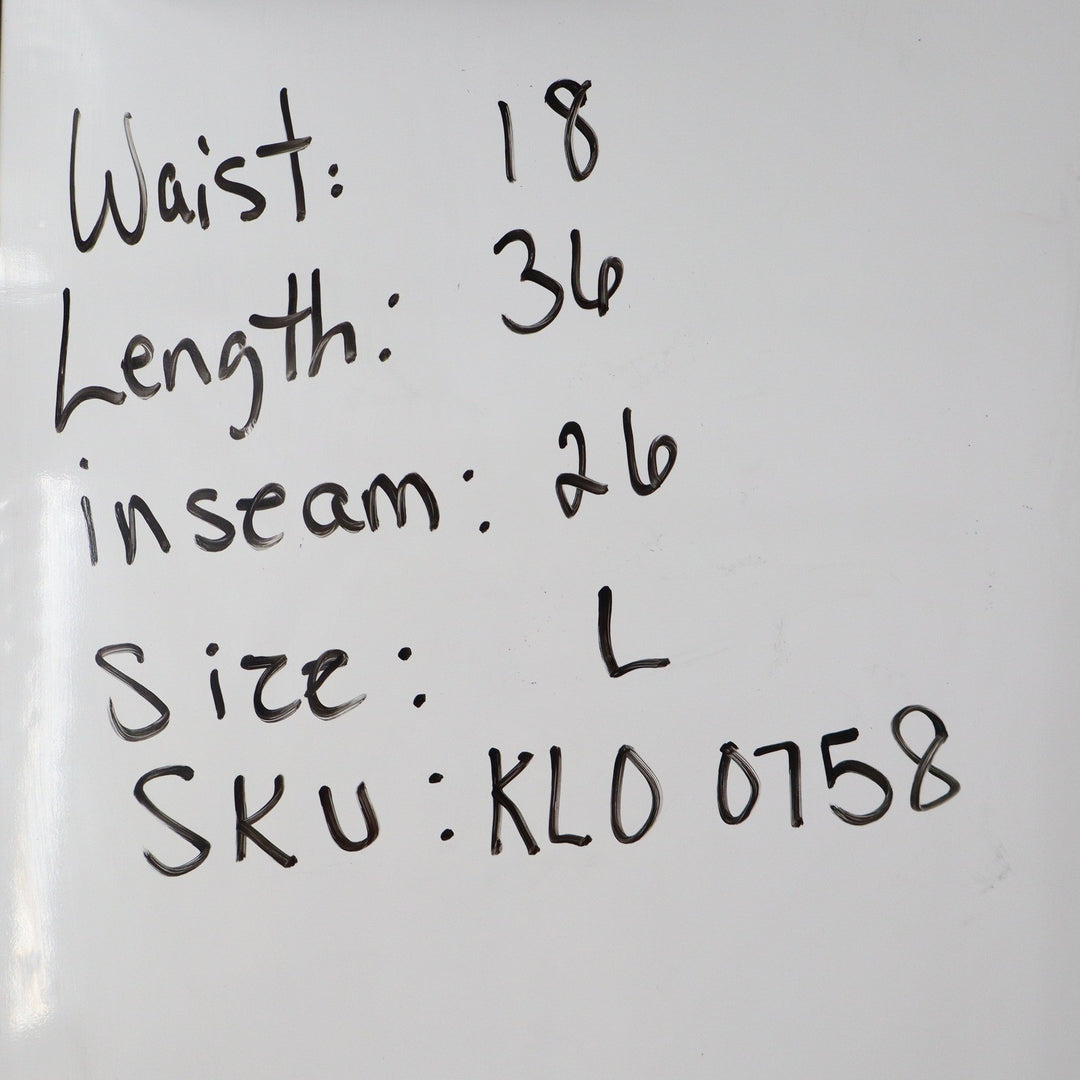 Waist: 18
Length: 36
inseam: 26
Size: L
SKU: KLO 0758